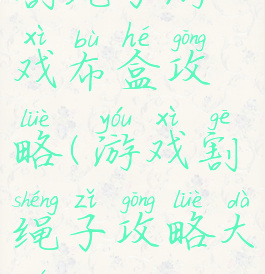 xì bù hé gōng
戏布盒攻
lüè yóu xì gē
略(游戏割
shéng zǐ gōng lüè dà
绳子攻略大